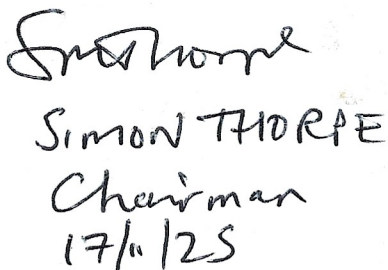 SThorpe
SIMON THORPE
Chairman
17/11/25